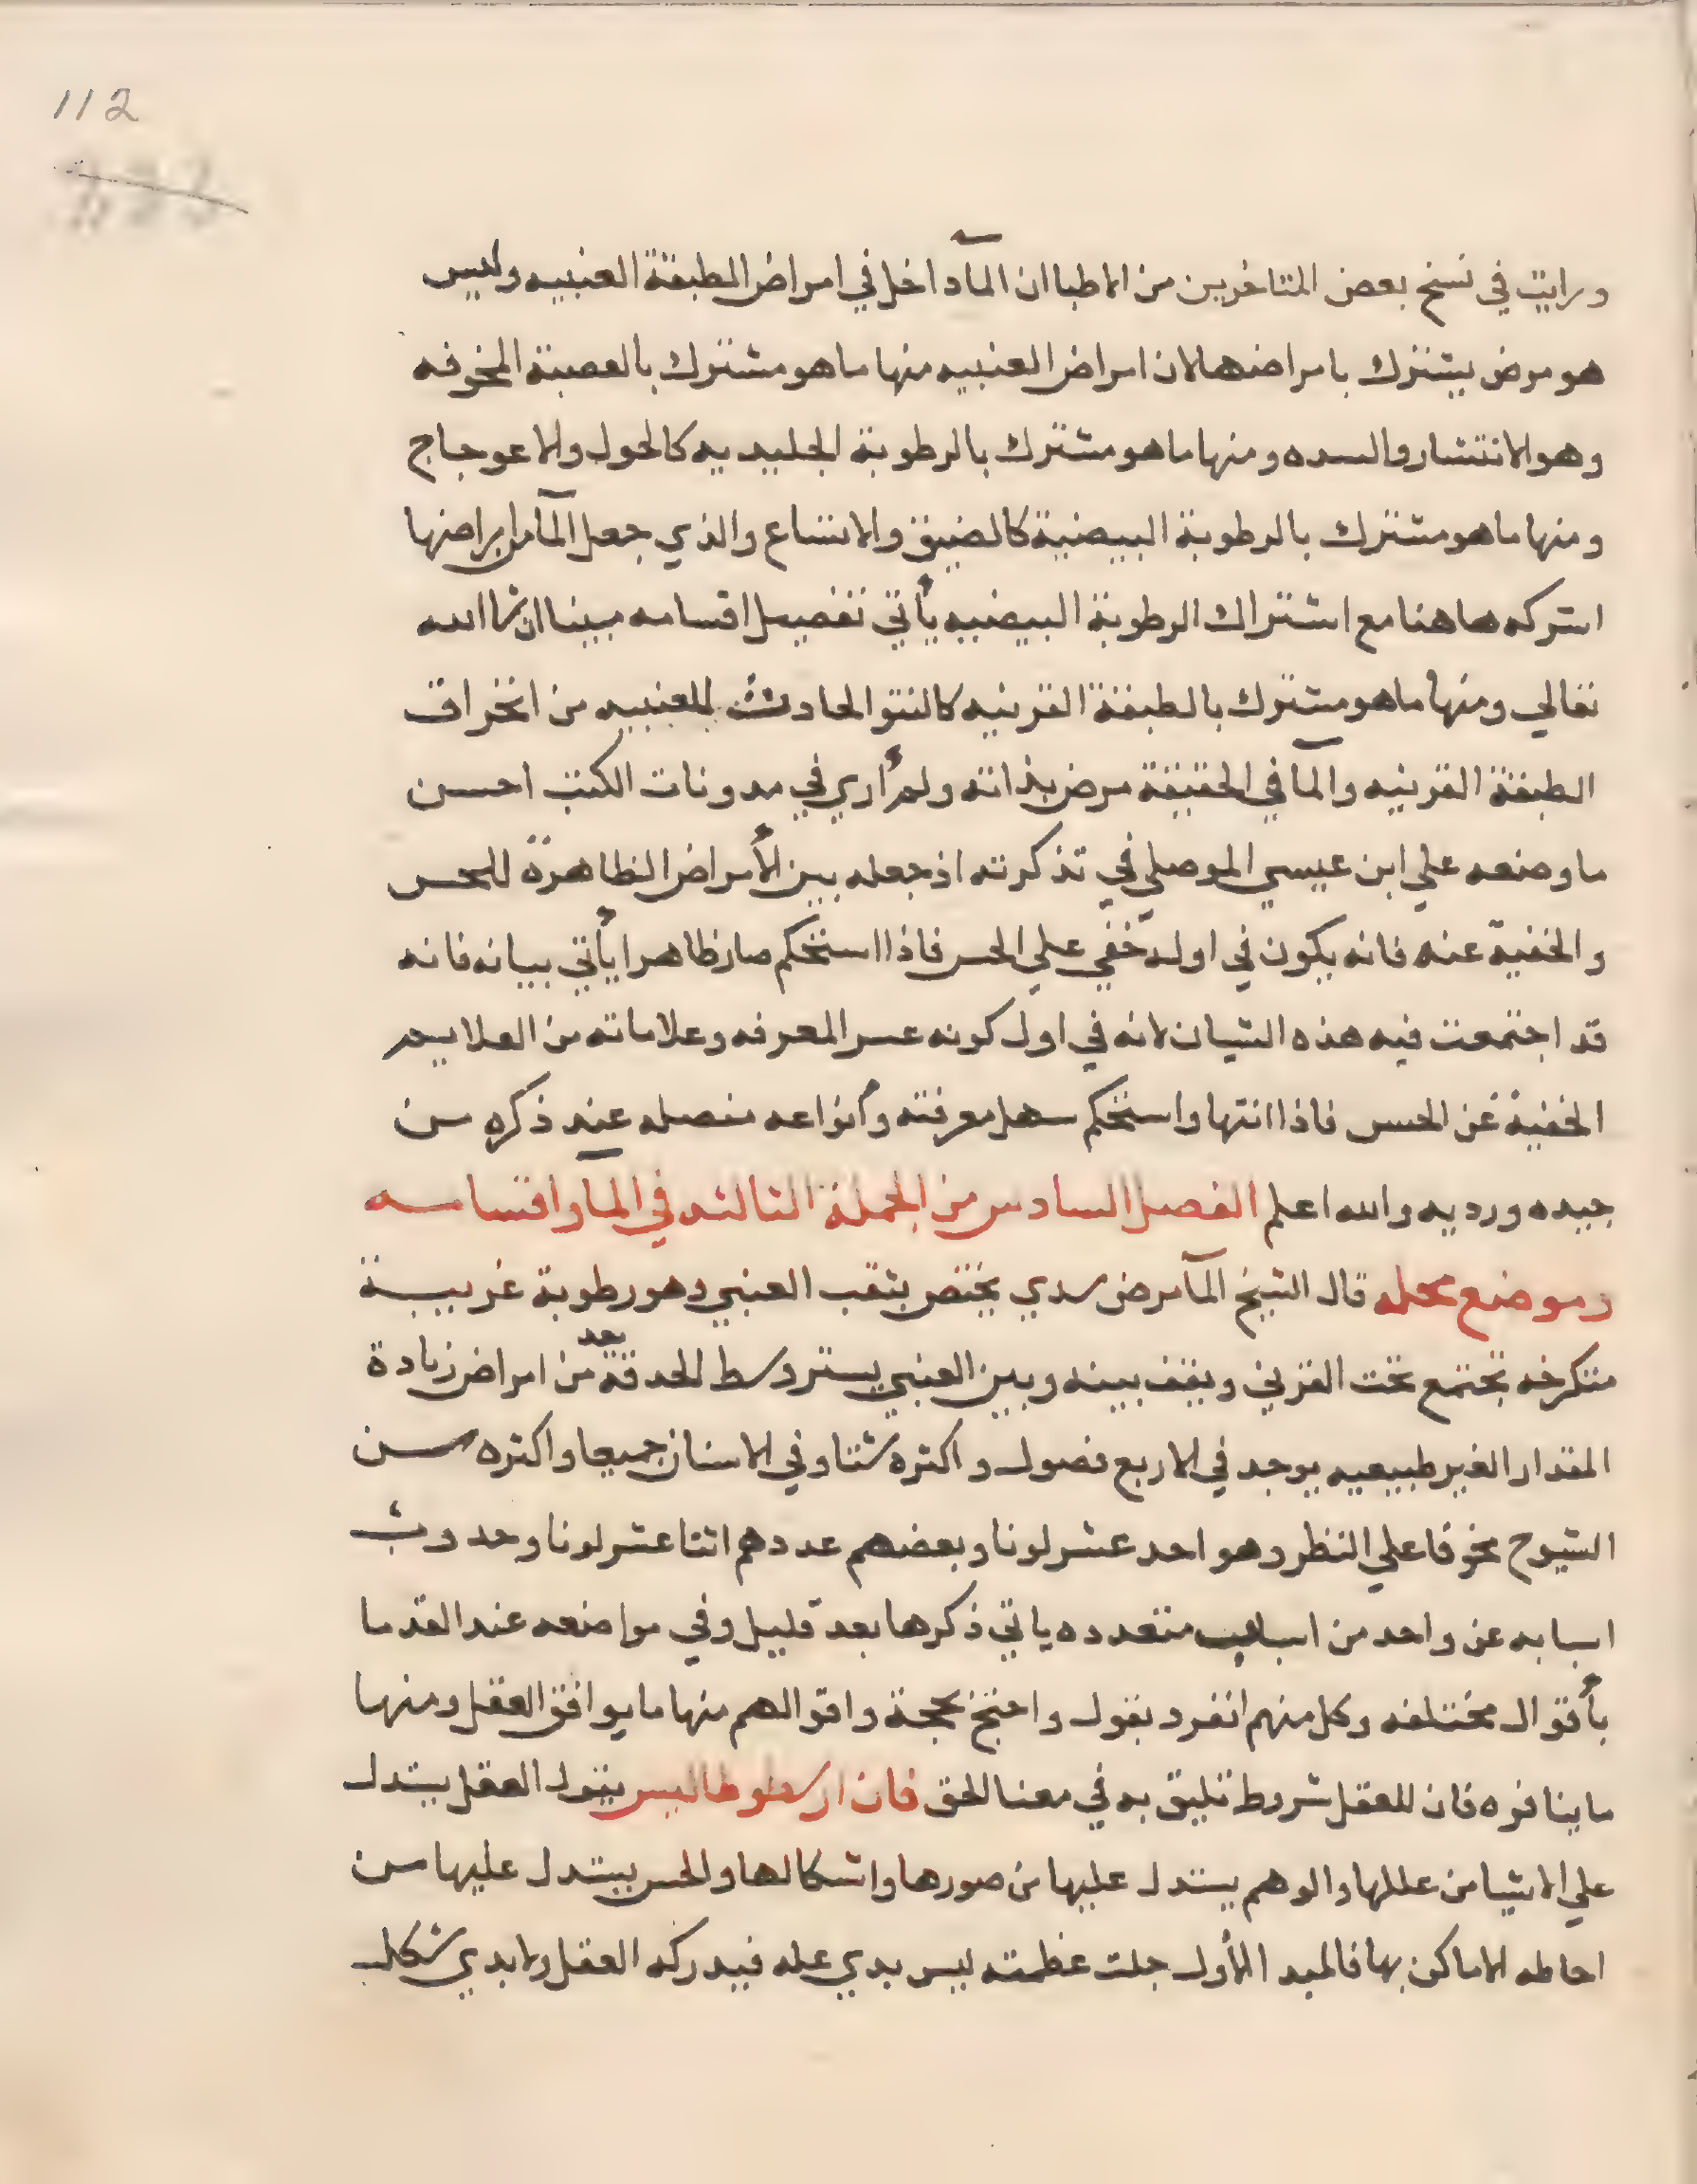 112
ورايت في نسخ بعض المتاخرين من الاطبا ان المآ داخل في امراض الطبقة العنبيه وليس
هو مرض يشترك بامراضها لان امراض العنبيه منها ما هو مشترك بالعصبة المجوفه
وهو الانتشار والسده ومنها ما هو مشترك بالرطوبة الجليديه كالحول والاعوجاج
ومنها ما هو مشترك بالرطوبة البيضية كالضيق والاتساع والذي جعل المآ من امراضها
اشركه هاهنا مع اشتراك الرطوبة البيضيه يأتي تفصيل اقسامه مبينا ان شا الله
تعالي ومنها ما هو مشترك بالطبقة القرنيه كالنتو الحادث للعنبيه من انخراق
الطبقة القرنيه والمآ في الحقيقة مرض بذاته ولم أري في مدونات الكتب احسن
ما وضعه علي ابن عيسي الموصلي في تذكرته اذ جعله بين الأمراض الظاهرة للحس
والخفية عنه فانه يكون في اوله خفي علي الحس فاذا استحكم صار ظاهرا يأتي بيانه فانه
قد اجتمعت فيه هذه الشيان لانه في اول كونه عسر المعرفه وعلاماته من العلايم
الخفية عن الحس فاذا انتها واستحكم سهل معرفته وأنواعه مفصله عند ذكره من
جيده ورديه والله اعلم الفصل السادس من الجملة الثالثه في المآ واقسامه
وموضع محله قال الشيخ المآ مرض سدي يختص بثقب العنبي وهو رطوبة غريبة
متكرخه تجتمع تحت القرني ويقف بينه وبين العنبي يستر وسط الحدقة بعد من امراض زيادة
المقدار الغير طبيعيه يوجد في الاربع فصول واكثره شتا وفي الاسنان جميعا واكثره من
الشيوخ مخوفا علي النظر وهو احد عشر لونا وبعضهم عددهم اثنا عشر لونا وحدوث
اسبابه عن واحد من اسباب متعدده ياتي ذكرها بعد قليل وفي مواضعه عند القدما
بأقوال مختلفه وكل منهم انفرد بقول واحتج بحجة واقوالهم منها ما يوافق العقل ومنها
ما ينافره فان للعقل شروط تليق به في معنا الحق فان ارسطوطاليس يقول العقل يستدل
علي الاشيا من عللها والوهم يستدل عليها من صورها واشكالها والحس يستدل عليها من
احاطه الاماكن بها فالمبد الأول جلت عظمته ليس بدي عله فيدركه العقل ولا بدي شكل